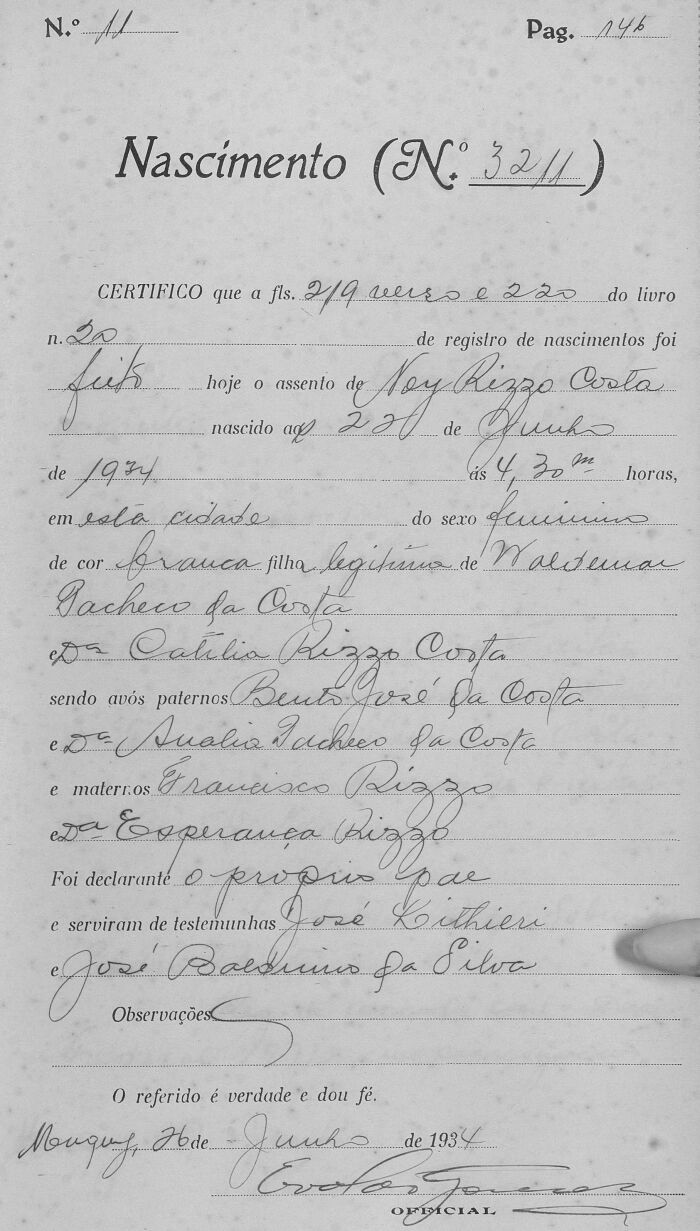 N.º 11 Pag. 146
Nascimento (N.º 3211)
CERTIFICO que a fls. 219 verso e 220 do livro
n. 20 de registro de nascimentos foi
feito hoje o assento de Ney Rizzo Costa
nascido aos 22 de Junho
de 1934 ás 4,30 m horas,
em esta cidade do sexo feminino
de cor branca filha legitima de Waldemar
Pacheco da Costa
e Dª Catilia Rizzo Costa
sendo avós paternos Bento José da Costa
e Dª Analia Pacheco da Costa
e maternos Francisco Rizzo
e Dª Esperança Rizzo
Foi declarante o proprio pae
e serviram de testemunhas José
e José Balduino da Silva
Observações
O referido é verdade e dou fé.
Muquy, 26 de Junho de 1934
OFFICIAL